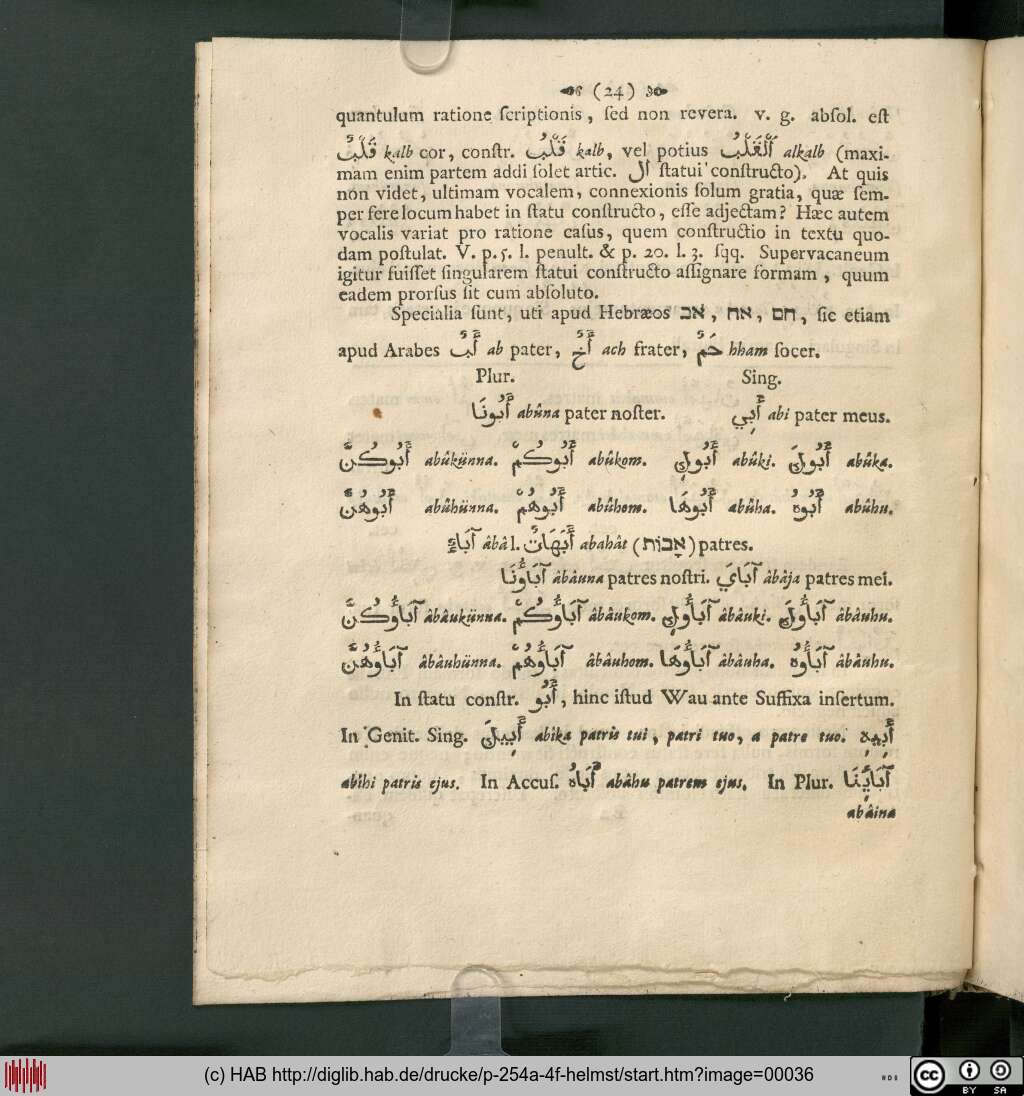 (24)
quantulum ratione ſcriptionis, ſed non revera. v. g. abſol. eſt
قَلْبٌ kalb cor, conſtr. قَلْبُ kalb, vel potius أَلْقَلْبُ alkalb (maxi-
mam enim partem addi ſolet artic. ال ſtatui conſtructo). At quis
non videt, ultimam vocalem, connexionis ſolum gratia, quæ ſem-
per fere locum habet in ſtatu conſtructo, eſſe adjectam? Hæc autem
vocalis variat pro ratione caſus, quem conſtructio in textu quo-
dam poſtulat. V. p. 5. l. penult. & p. 20. l. 3. ſqq. Supervacaneum
igitur fuiſſet ſingularem ſtatui conſtructo aſſignare formam, quum
eadem prorſus ſit cum abſoluto.
Specialia ſunt, uti apud Hebræos אב, אח, חם, ſic etiam
apud Arabes أَبٌ ab pater, أَخٌ ach frater, حَمٌ hham ſocer.
Plur. Sing.
أَبُونَا abûna pater noſter. أَبِي abi pater meus.
أَبُوكُنَّ abûkünna. أَبُوكُمْ abûkom. أَبُوكِ abûki. أَبُوكَ abûka.
أَبُوهُنَّ abûhünna. أَبُوهُمْ abûhom. أَبُوهَا abûha. أَبُوهُ abûhu.
آبَاءٌ âbâ l. أَبَهَاتٌ abahât (אָבוֹת) patres.
آبَاؤُنَا âbâuna patres noſtri. آبَايَ âbâja patres mei.
آبَاؤُكُنَّ âbâukünna. آبَاؤُكُمْ âbâukom. آبَاؤُكِ âbâuki. آبَاؤُكَ âbâuhu.
آبَاؤُهُنَّ âbâuhünna. آبَاؤُهُمْ âbâuhom. آبَاؤُهَا âbâuha. آبَاؤُهُ âbâuhu.
In ſtatu conſtr. أَبُو, hinc iſtud Wau ante Suffixa inſertum.
In Genit. Sing. أَبِيكَ abika patris tui, patri tuo, a patre tuo. أَبِيهِ
abîhi patris ejus. In Accuſ. أَبَاهُ abâhu patrem ejus. In Plur. آبَائِنَا
abâina
(c) HAB http://diglib.hab.de/drucke/p-254a-4f-helmst/start.htm?image=00036
HAB
cc BY SA